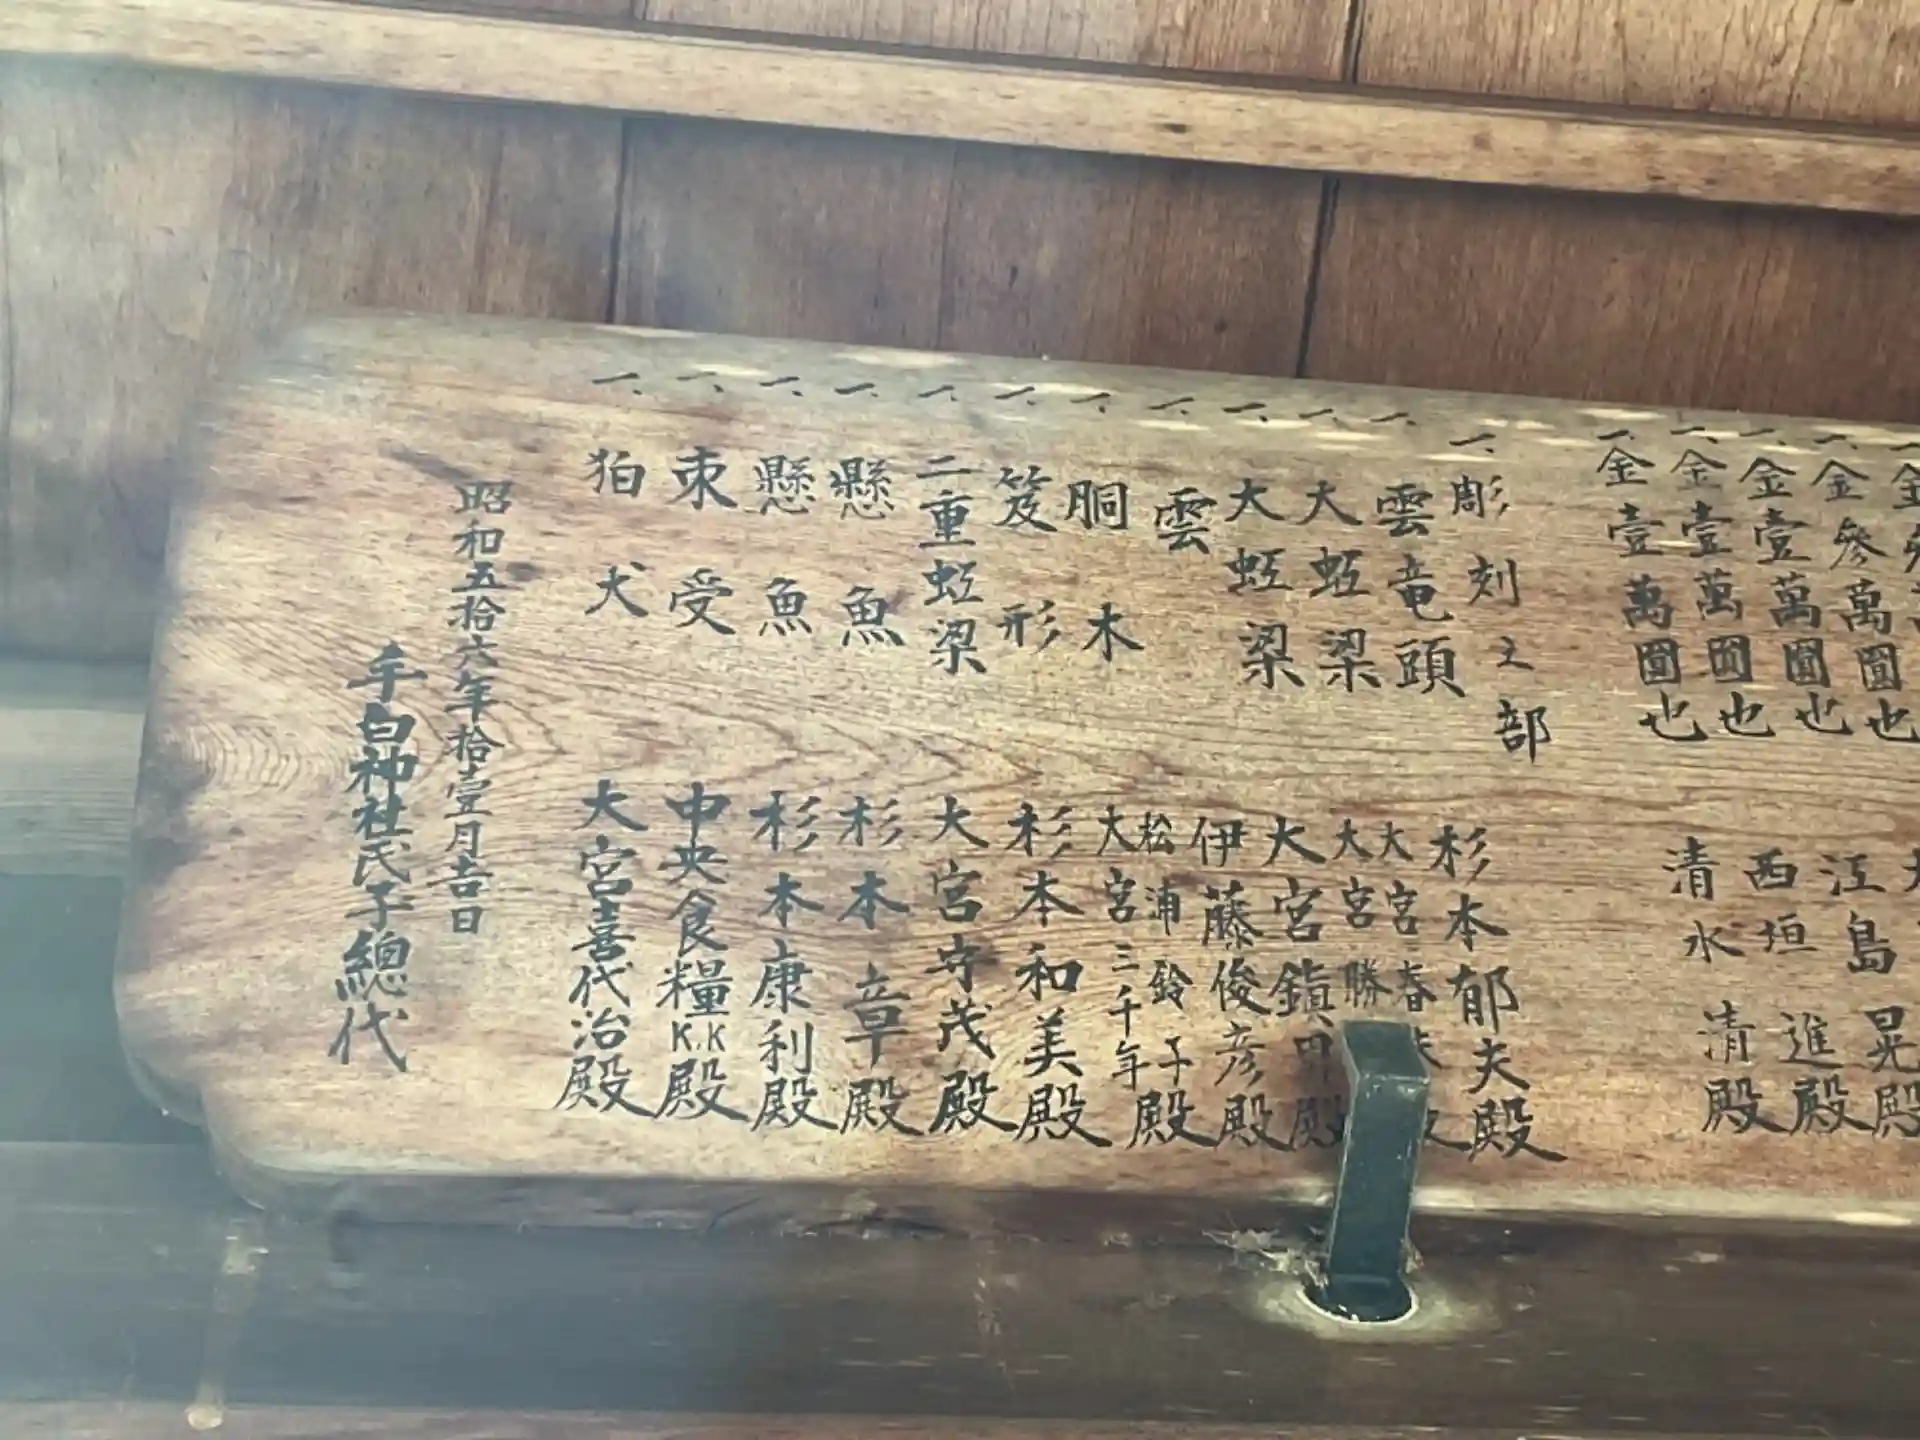 一、金參萬圓也 江島 晃殿
一、金壹萬圓也 西垣 進殿
一、金壹萬圓也 清水 清殿
一、金壹萬圓也
一、彫刻之部
一、雲竜頭 杉本郁夫殿
一、大蛭梁 大宮春 大宮勝
一、大蛭梁 大宮鎮 殿
雲 伊藤俊彦殿
一、胴木 松浦鈴子 大宮三千年殿
一、笈形 杉本和美殿
一、二重蛭梁 大宮守茂殿
一、懸魚 杉本 章殿
一、懸魚 杉本康利殿
一、束受 中央食糧K.K殿
一、狛犬 大宮喜代治殿
昭和五拾六年拾壹月吉日
手白神社氏子總代